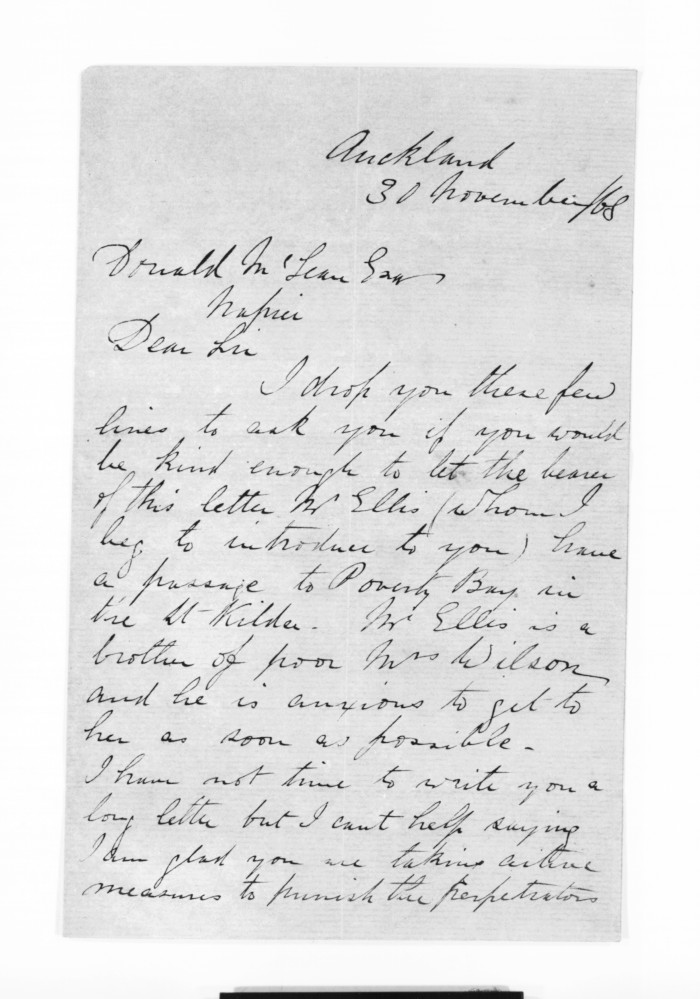 Auckland
30 November/68
Donald McLean Esqr
Napier
Dear Sir
I drop you these few
lines to ask you if you would
be kind enough to let the bearer
of this letter Mr Ellis (whom I
beg to introduce to you) have
a passage to Poverty Bay in
the St Kilda. Mr Ellis is a
brother of poor Mrs Wilson
and he is anxious to get to
her as soon as possible.
I have not time to write you a
long letter but I cant help saying
I am glad you are taking active
measures to punish the perpetrators